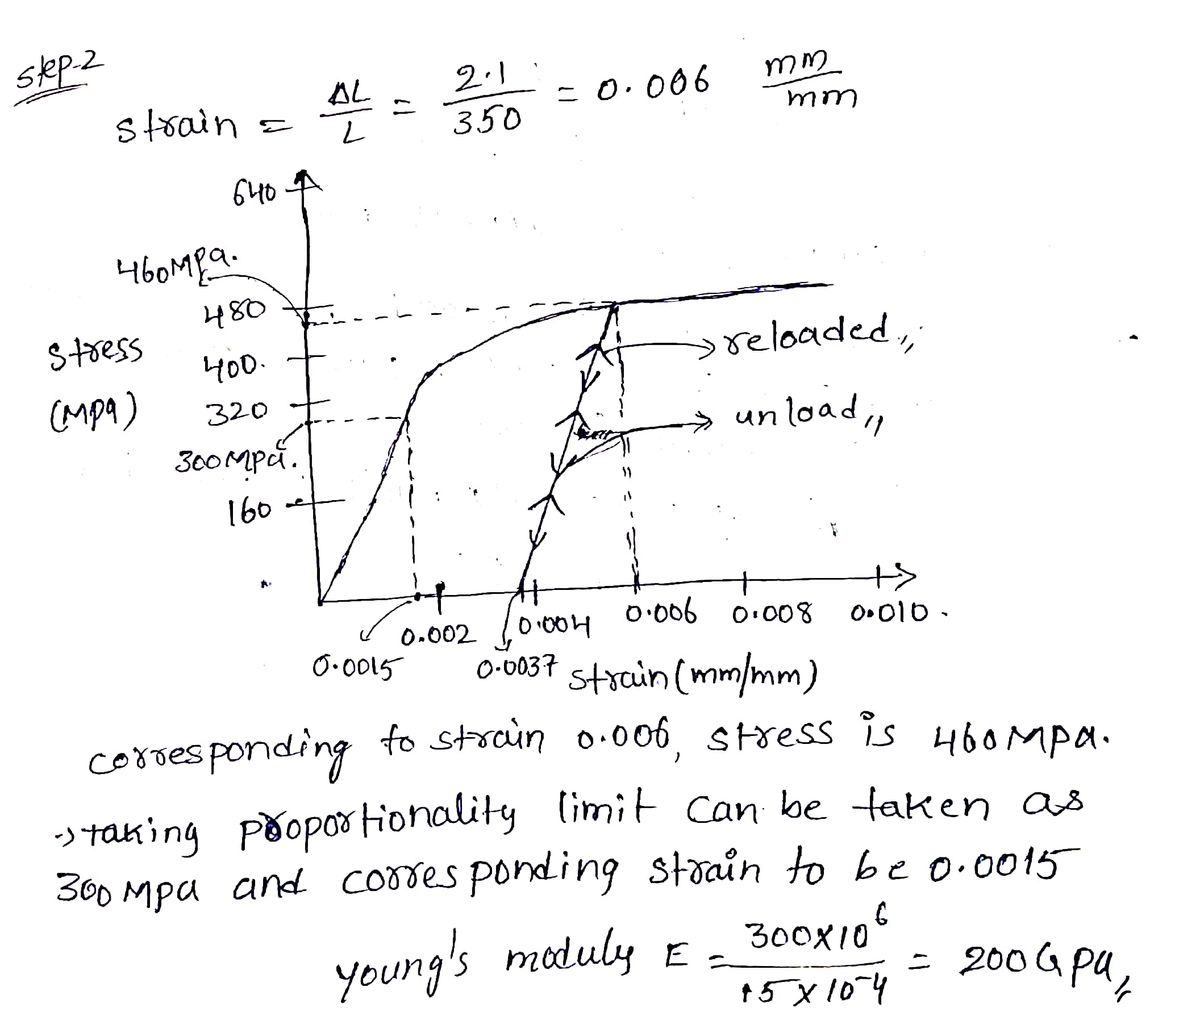 step-2
strain = ΔL/L = 2.1/350 = 0.006 mm/mm
640
460MPa.
480
stress
400.
(MPa)
320
300MPa.
160
reloaded,,
unload,,
0.0015
0.002
0.0037
0.004
0.006
0.008
0.010.
strain (mm/mm)
corresponding to strain 0.006, stress is 460MPa.
→taking proportionality limit can be taken as
300 MPa and corresponding strain to be 0.0015
young's moduly E = 300×10^6/15×10^-4 = 200GPa,,